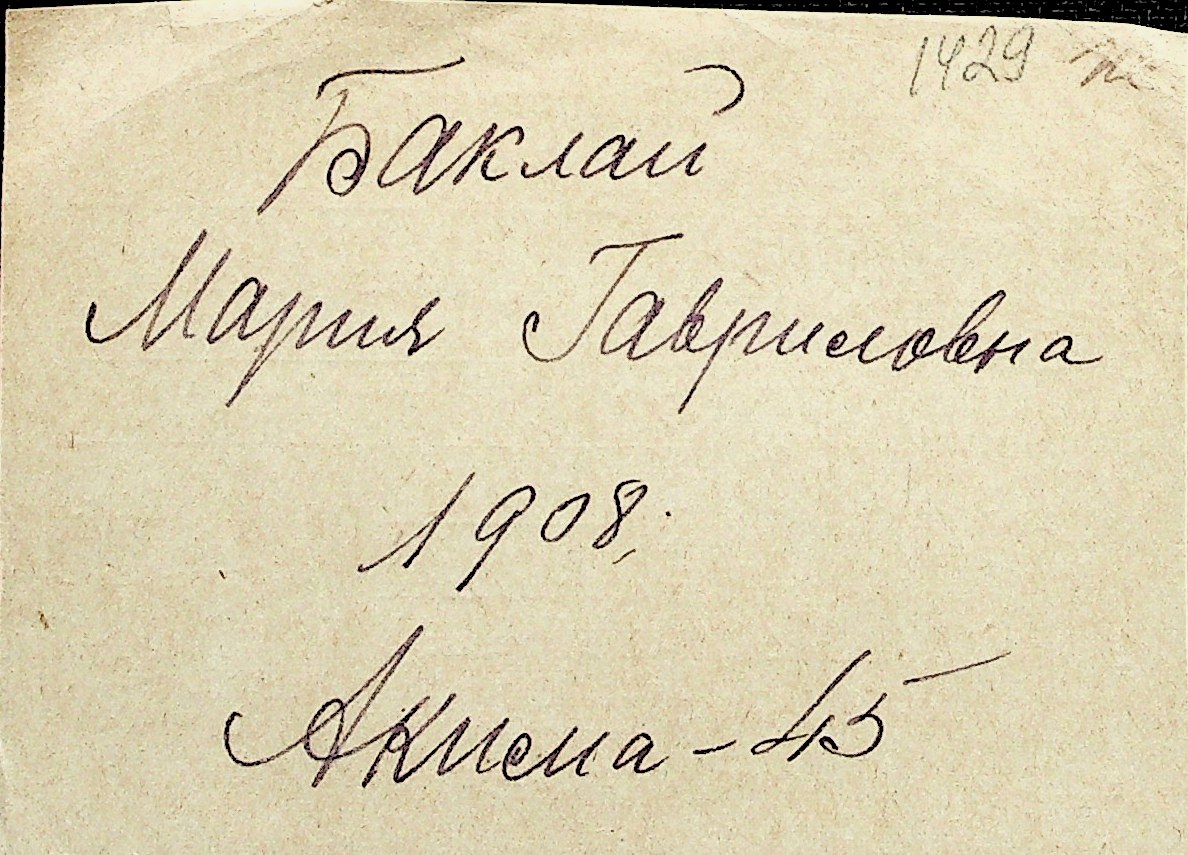 1429
Баклай
Мария Гавриловна
1908.
Акима - 45